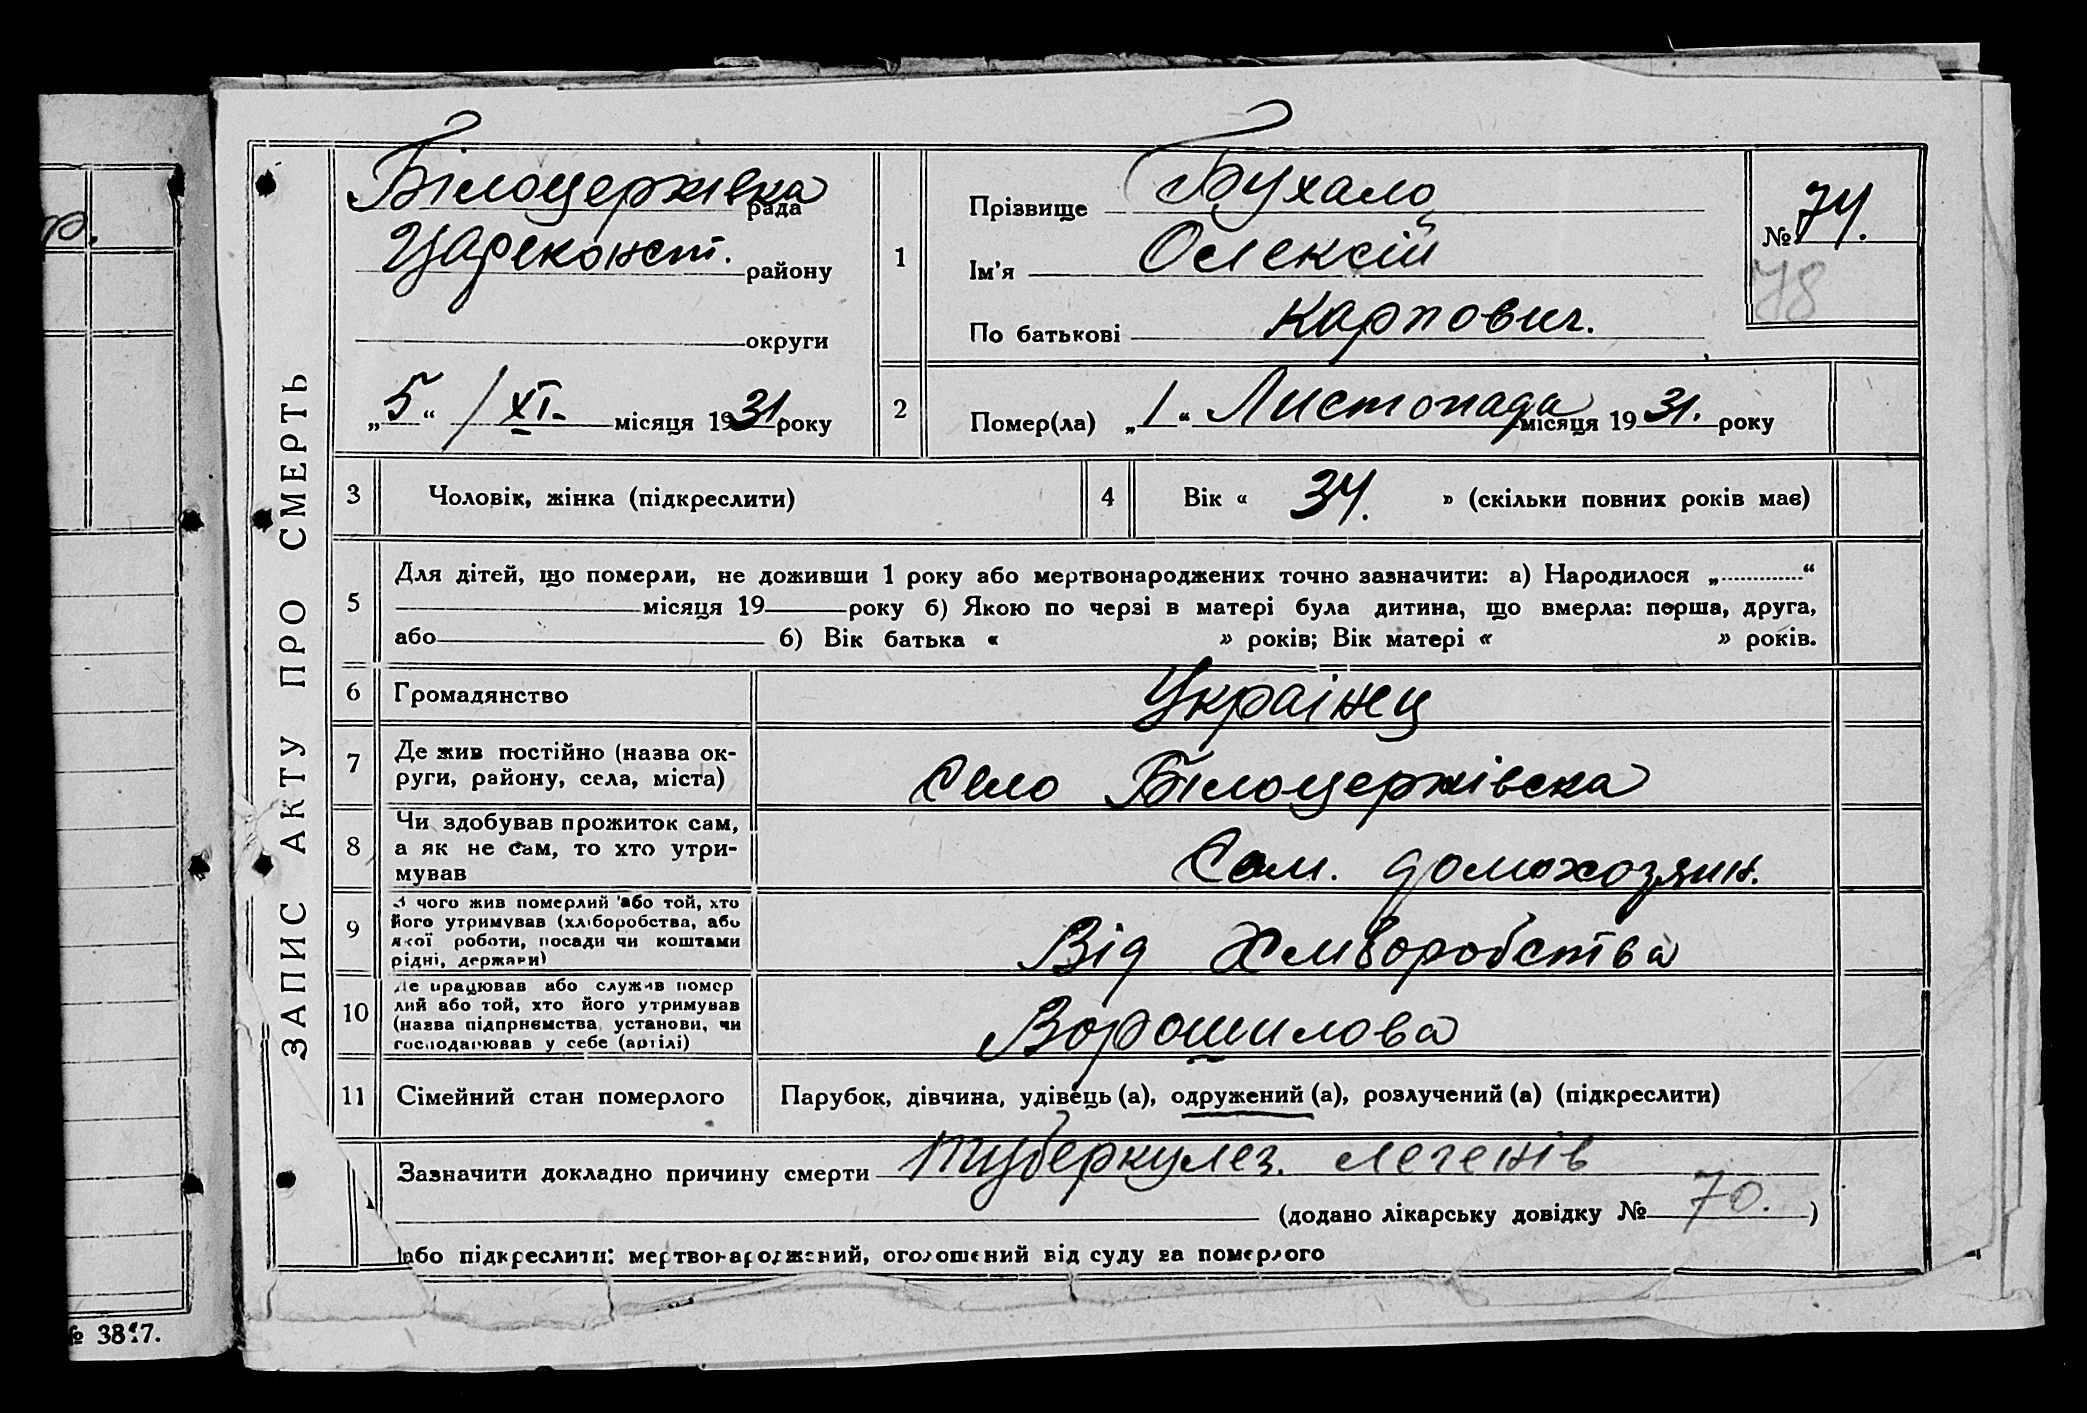 ЗАПИС АКТУ ПРО СМЕРТЬ
Білоцерківка рада
Цареконст. району
округи
„5“ / XI. місяця 1931 року
1
Прізвище Бухало
Ім'я Олексій
По батькові Карпович.
№ 74.
78
2
Помер(ла) „1“ Листопада місяця 1931. року
3 Чоловік, жінка (підкреслити)
4 Вік « 34. » (скільки повних років має)
5 Для дітей, що померли, не доживши 1 року або мертвонароджених точно зазначити: а) Народилося „............“
місяця 19 року б) Якою по черзі в матері була дитина, що вмерла: перша, друга,
або б) Вік батька « » років; Вік матері « » років.
6 Громадянство Українец
7 Де жив постійно (назва ок-
руги, району, села, міста) Село Білоцерківска
8 Чи здобував прожиток сам,
а як не сам, то хто утри-
мував Сам. домохозяин.
9 З чого жив померлий або той, хто
його утримував (хліборобства, або
якої роботи, посади чи коштами
рідні, держави) Від Хлиборобства
10 Де працював або служив помер
лий або той, хто його утримував
(назва підприємства, установи, чи
господарював у себе (артілі) Ворошилова
11 Сімейний стан померлого Парубок, дівчина, удівець (а), одружений (а), розлучений (а) (підкреслити)
Зазначити докладно причину смерти туберкулез. легенів
(додано лікарську довідку № 70. )
або підкреслити: мертвонароджений, оголошений від суду за померлого
р.
№ 3817.